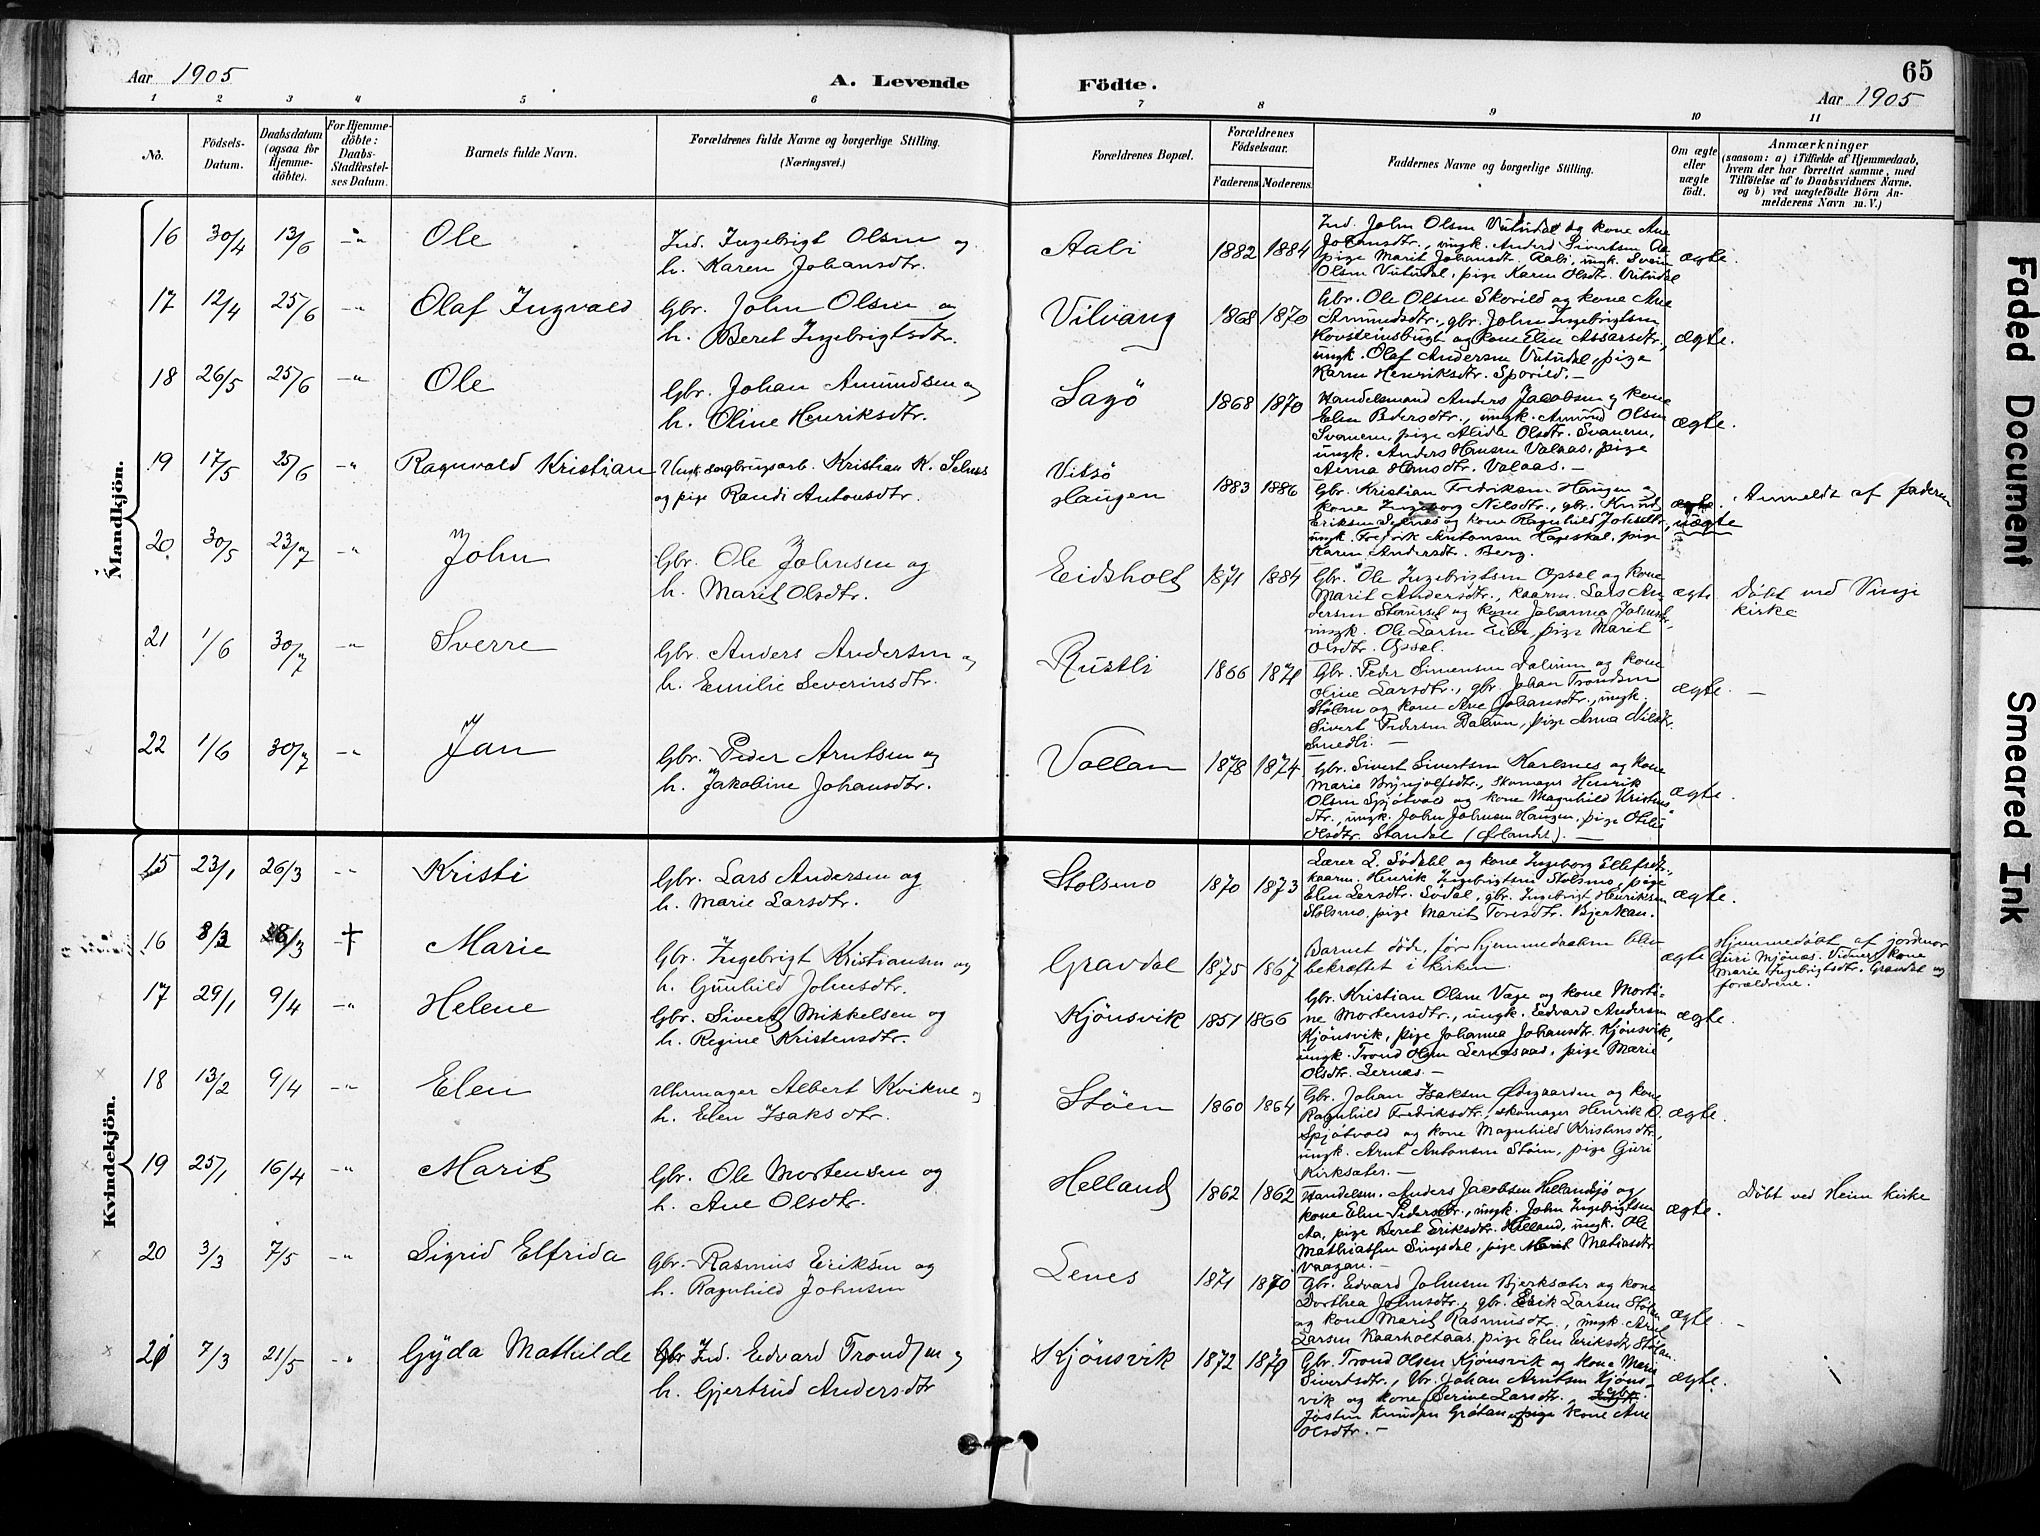 Aar 1905
A. Levende
Födte.
65
Aar 1905
1 2 3 4 5 6 7 8 9 10 11
No.
Födsels-
Datum.
Daabsdatum
(ogsaa for
Hjemme-
döbte).
For Hjemme-
döbte:
Daabs-
Stadfæstel-
ses Datum.
Barnets fulde Navn.
Forældrenes fulde Navne og borgerlige Stilling.
(Næringsvei.)
Forældrenes Bopæl.
Forældrenes
Födselsaar.
Faderens
Moderens
Faddernes Navne og borgerlige Stilling.
Om ægte
eller
uægte
födt.
Anmærkninger
(saasom: a) i Tilfælde af Hjemmedaab,
hvem der har forrettet samme, med
Tilföielse af to Daabsvidners Navne.
og b) ved uægtefödte Börn An-
melderens Navn m. V.)
Mandkjön.
16 30/4 13/6 -"- Ole
Ind. Ingebrigt Olsen og
h. Karen Johansdtr.
Aali 1882 1884
Ind. John Olsen Vutudal og kone Ane
Johansdtr., ungk. Anders Sivertsen Aa
pige Marit Johansdtr. Aali, ungk. Svein
Olsen Vutudal, pige Karen Olsdtr. Vutudal
ægte.
17 12/4 25/6 -"- Olaf Ingvald
Gbr. John Olsen og
h. Beret Ingebrigtsdtr.
Vilvang 1868 1870
Gbr. Ole Olsen Skorild og kone Ane
Amundsdtr., gbr. John Ingebrigtsen
Hovsteinsbugt og kone Elen Assersdtr.,
ungk. Olaf Andersen Vutudal, pige
Karen Henriksdtr. Sporild. -
ægte.
18 26/5 25/6 -"- Ole
Gbr. Johan Amundsen og
h. Oline Henriksdtr.
Sagö 1868 1870
Handelsmand Anders Jacobsen og kone
Elen Pedersdtr., ungk. Amund Olsen
Svanem, pige Alida Olsdtr. Svanem,
ungk. Anders Hansen Valaas, pige
Anna Hansdtr. Valaas. -
ægte.
19 17/5 25/6 -"- Ragnvald Kristian
Ungk. sagbrugsarb. Kristian K. Selnes
og pige Randi Antonsdtr.
Vitsö
Haugen 1883 1886
Gbr. Kristian Fredriksen Haugen og
kone Ingeborg Nilsdtr., gbr. Knud
Eriksen Selnes og kone Ragnhild Johnsdtr.,
ungk. Fredrik Antonsen Hageskal, pige
Karen Andersdtr. Berg.
ægte.
uægte
Anmeldt af faderen
20 30/5 23/7 -"- John
Gbr. Ole Johnsen og
h. Marit Olsdtr.
Eidsholt 1871 1884
Gbr. Ole Ingebrigtsen Opsal og kone
Marit Andersdtr., kaarm. Lars An-
dersen Staurset og kone Johanna Johnsdtr.,
ungk. Ole Larsen Eide, pige Marit
Olsdtr. Opsal.
ægte
Döbt ved Vinje
kirke
21 1/6 30/7 -"- Sverre
Gbr. Anders Andersen og
h. Emilie Severinsdtr.
Rustli 1866 1871
Gbr. Peder Simensen Dalum og kone
Oline Larsdtr., gbr. Johan Trondsen
Stölen og kone Ane Johansdtr., ungk.
Sivert Pedersen Dalum, pige Anna Nilsdtr.
Smedli. -
ægte. -
22 1/6 30/7 -"- Jan
Gbr. Peder Arntsen og
h. Jakobine Johansdtr.
Vollan 1878 1874
Gbr. Sivert Sivertsen Karlsnes og kone
Marie Brynjolfsdtr., skomager Henrik
Olsen Spjötvold og kone Magnhild Kristens-
dtr., ungk. John Johnsen Haugen, pige Otelie
Olsdtr. Standal (Ørlandet). -
ægte.
Kvindekjön.
15 23/1 26/3 -"- Kristi
Gbr. Lars Andersen og
h. Marie Larsdtr.
Stolsmo 1870 1873
Lærer L. Södahl og kone Ingeborg Ellefsdtr.,
kaarm. Henrik Ingebrigtsen Stolsmo, pige
Elen Larsdtr. Södal, gbr. Ingebrigt Henriksen
Stolsmo, pige Marit Toresdtr. Bjerkan.
ægte.
16 8/3 /3 † Marie
Gbr. Ingebrigt Kristiansen og
h. Gunhild Johnsdtr.
Gravdal 1875 1867
Barnet döde, för hjemmedaaben blev
bekræftet i kirken.
ægte
Hjemmedöbt af jordmor
Guri Mjönes. Vidner: kone
Marie Ingebrigtsdtr. Gravdal og
forældrene.
17 29/1 9/4 -"- Helene
Gbr. Sivert Mikkelsen og
h. Regine Kristensdtr.
Kjönsvik 1851 1866
Gbr. Kristian Olsen Vage og kone Morti-
ne Mortensdtr., ungk. Edvard Andersen
Kjönsvik, pige Johanna Johansdtr. Kjönsvik,
ungk. Trond Olsen Lernesaad, pige Marie
Olsdtr. Lernes. -
ægte.
18 13/2 9/4 -"- Elen
Uhrmager Albert Kvikne og
h. Elen Isaksdtr.
Stöen 1860 1864
Gbr. Johan Isaksen Ødegaarden og kone
Ragnhild Fredriksdtr., skomager Henrik O.
Spjötvold og kone Magnhild Kristensdtr.,
ungk. Arnt Antonsen Stöen, pige Guri
Kirksæter. -
ægte.
19 25/1 16/4 -"- Marit
Gbr. Ole Mortensen og
h. Ane Olsdtr.
Helland 1862 1862
Handelsm. Anders Jacobsen Hellandsjö og
kone Elen Pedersdtr., ungk. John Ingebrigtsen
Aa, pige Beret Eriksdtr. Helland, ungk. Ole
Mathiassen Singsdal, pige Marit Mathiasdtr.
Vaagan. -
ægte.
Döbt ved Heim kirke
20 3/3 7/5 -"- Sigrid Elfrida
Gbr. Rasmus Eriksen og
h. Ragnhild Johnsen
Lenes 1871 1870
Gbr. Edvard Johnsen Bjerksæter og kone
Dorthea Johnsdtr., gbr. Erik Larsen Stölan
og kone Marit Rasmusdtr., ungk. Arnt
Larsen Kaarholtaas, pige Elen Eriksdtr. Stölan.
ægte. -
21 7/3 21/5 -"- Gyda Mathilde
Gbr Ind. Edvard Trondsen og
h. Gjertrud Andersdtr
Kjönsvik 1872 1879
Gbr. Trond Olsen Kjönsvik og kone Marit
Sivertsdtr., gbr. Johan Arntsen Kjöns-
vik og kone Serine Larsdtr., ungk. Gbr.
Josten Knudsen Grötan og pige kone Ane
Olsdtr. -
ægte.
Faded Document
Smeared Ink